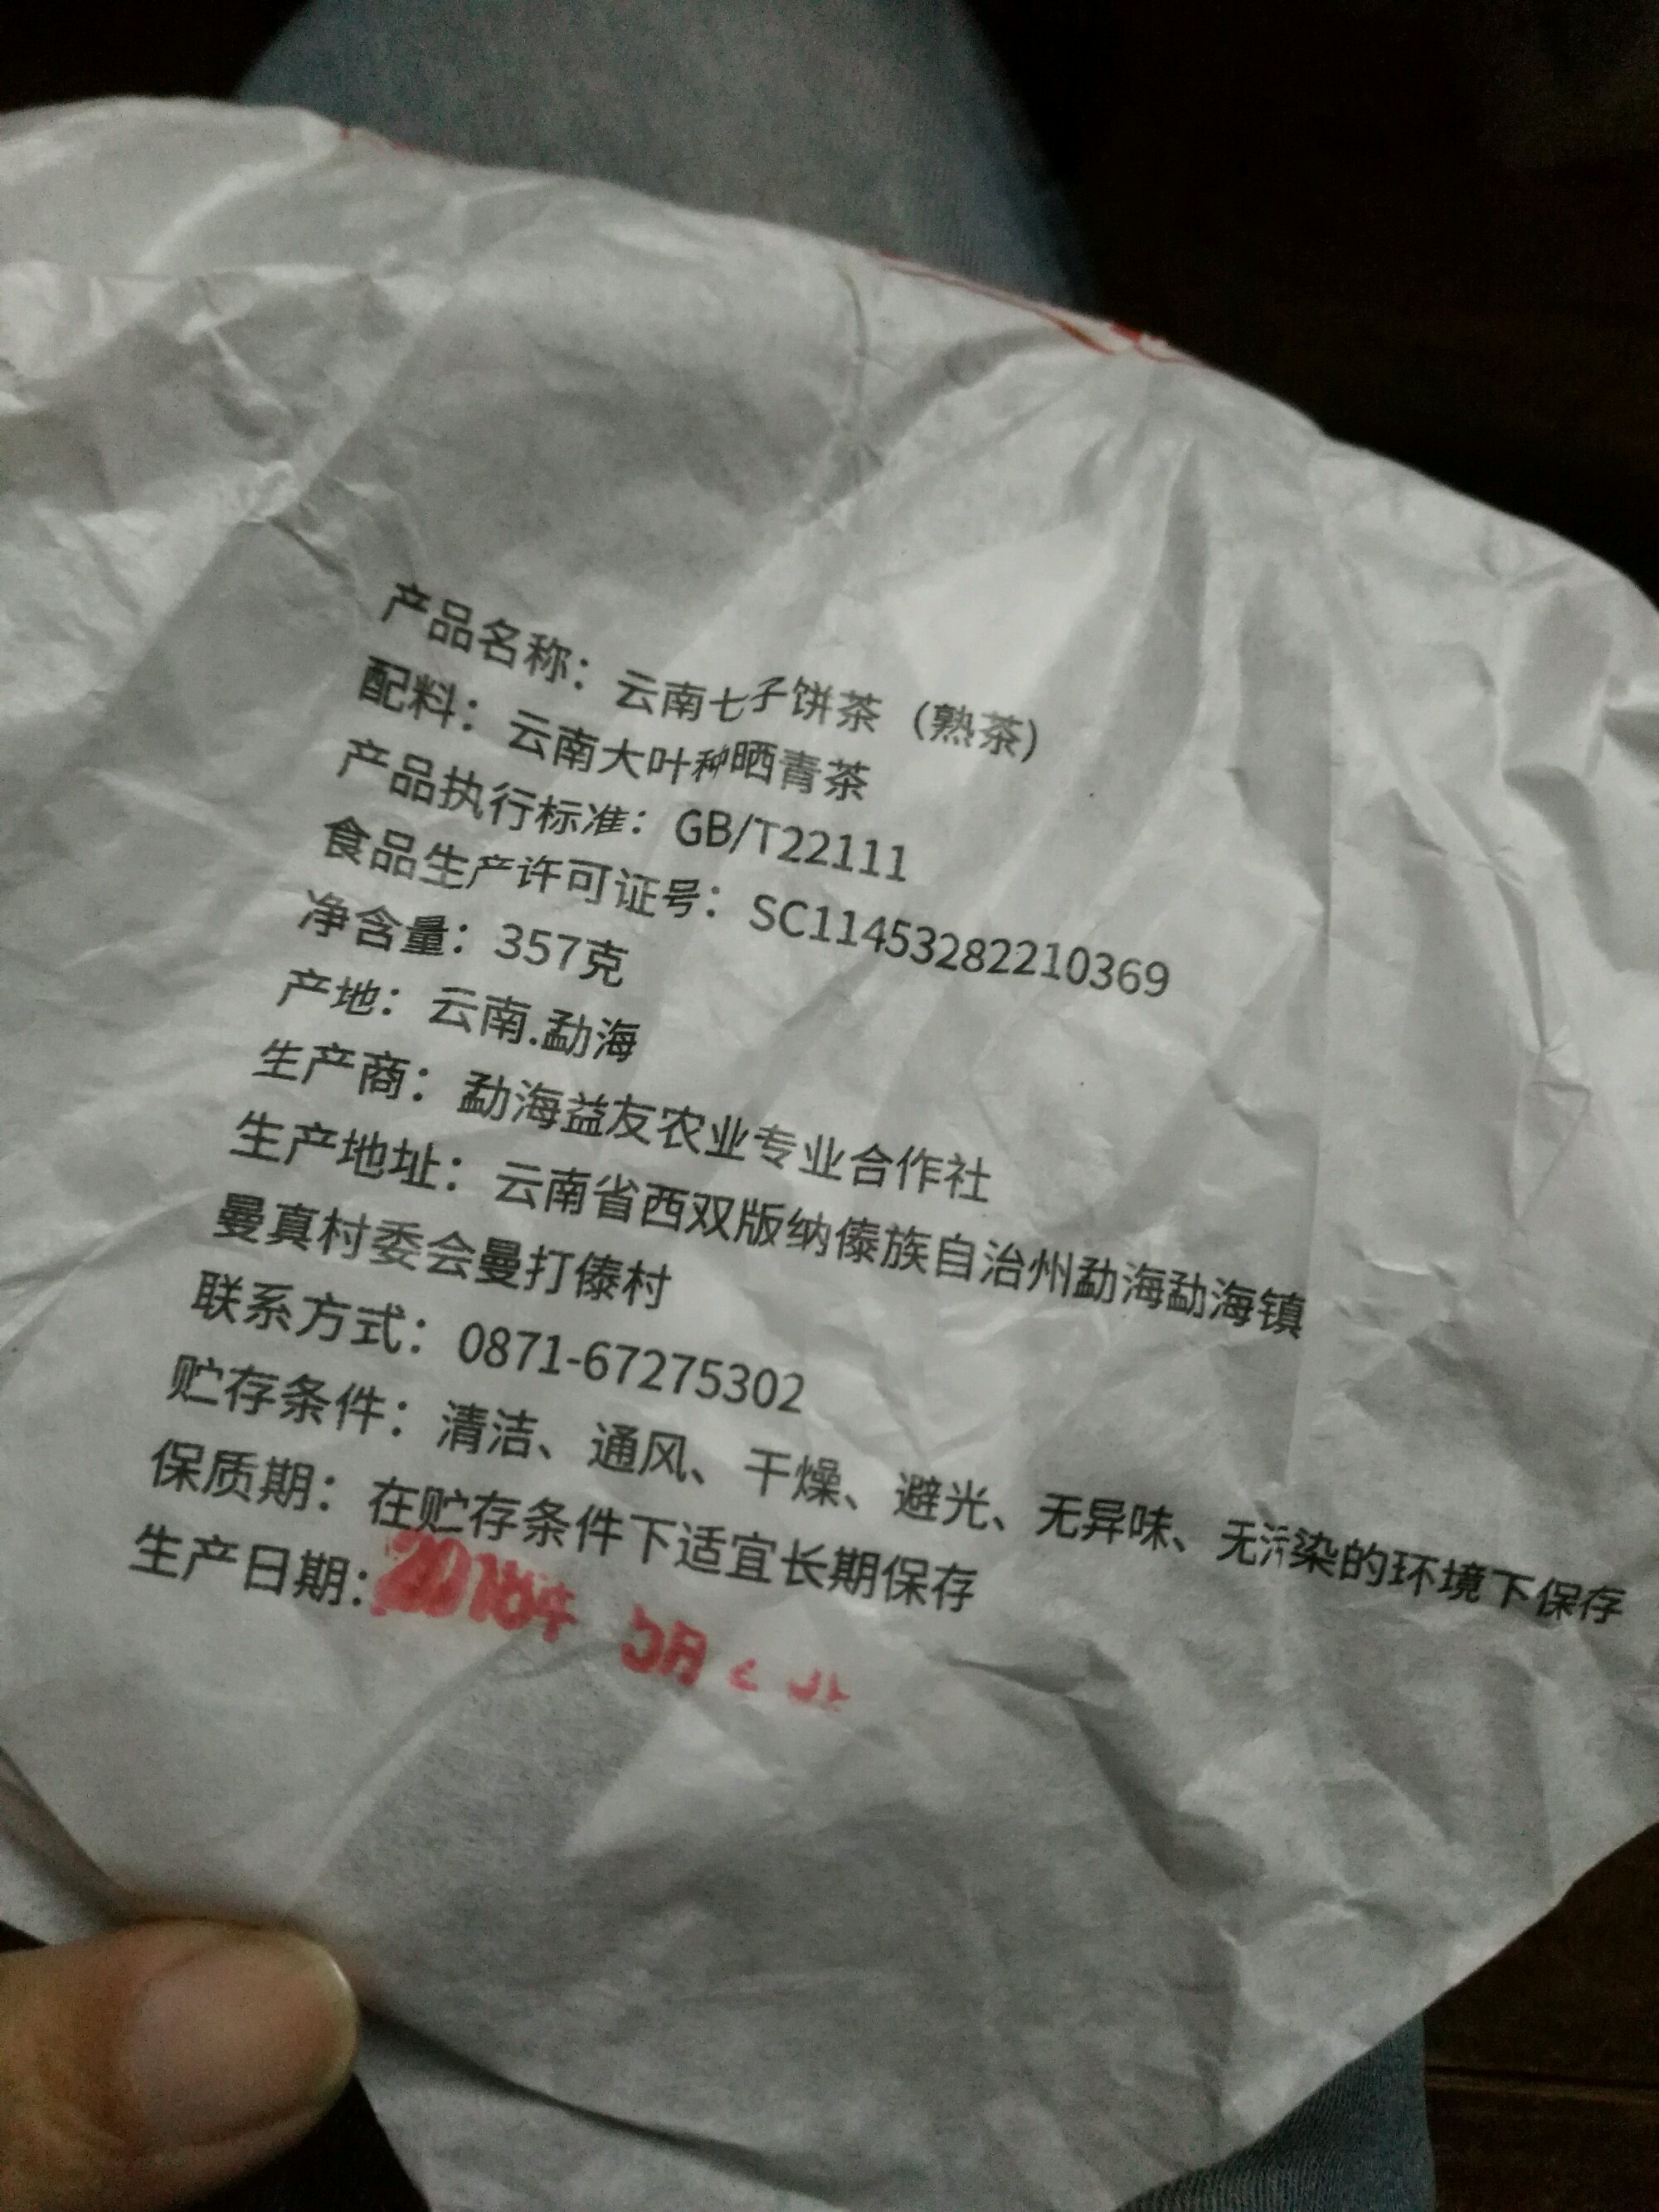 产品名称：云南七子饼茶（熟茶）
配料：云南大叶种晒青茶
产品执行标准：GB/T22111
食品生产许可证号：SC11453282210369
净含量：357克
产地：云南.勐海
生产商：勐海益友农业专业合作社
生产地址：云南省西双版纳傣族自治州勐海勐海镇
曼真村委会曼打傣村
联系方式：0871-67275302
贮存条件：清洁、通风、干燥、避光、无异味、无污染的环境下保存
保质期：在贮存条件下适宜长期保存
生产日期：2018年 5月